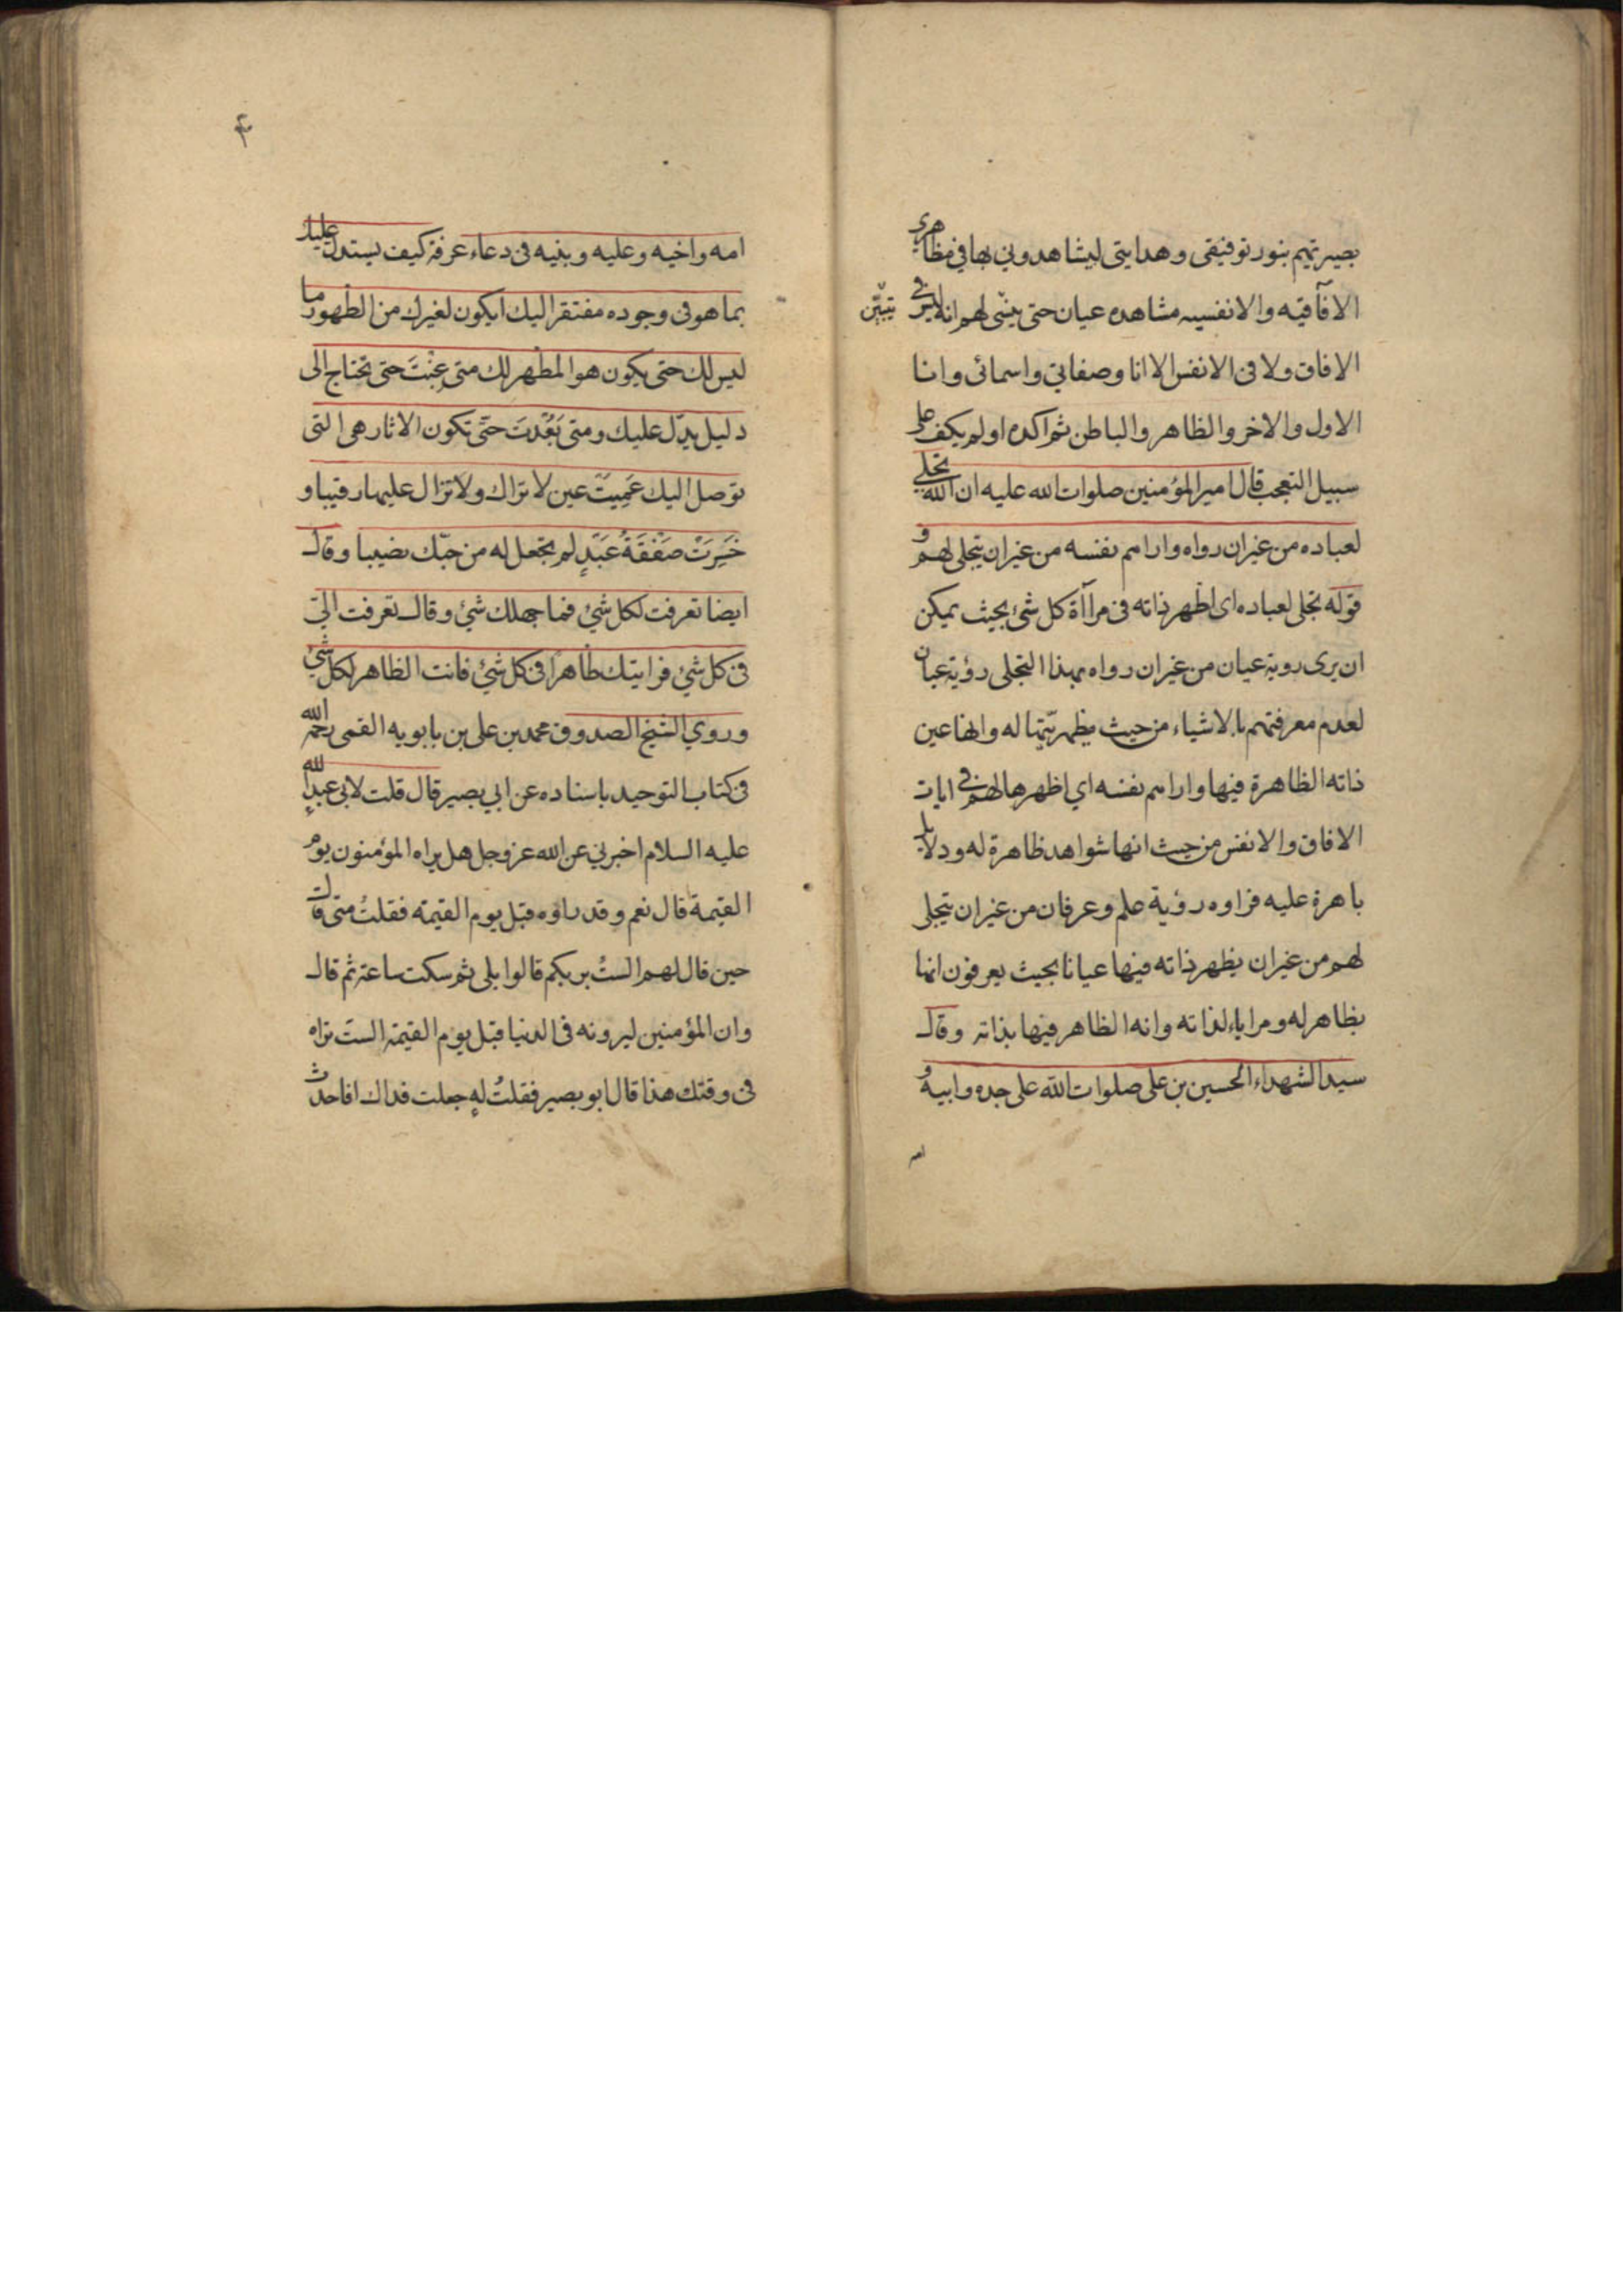 بصيرتهم بنور توفيقى وهدايتى ليشاهدوني بها في مظاهرى
الافآقيه والانفسيه مشاهده عيان حتى يتبين لهم انه ليس فى
تبيّن
الافاق ولا فى الانفس الا انا وصفاتي واسمائى وانا
الاول والاخر والظاهر والباطن ثم اكده اولم يكف على
سبيل التعجب قال امير المؤمنين صلوات الله عليه ان الله تجلى
لعباده من غير ان رواه واراهم نفسه من غير ان يتجلى لهم و
قوله تجلى لعباده اى اظهر ذاته فى مرآة كل شئ بحيث يمكن
ان يرى روية عيان من غير ان رواه بهذا التجلى رؤية عيان
لعدم معرفتهم بالاشياء من حيث مظهريّتها له وانها عين
ذاته الظاهرة فيها واراهم نفسه اي اظهرها لهم فى ايات
الافاق والانفس من حيث انها شواهد ظاهرة له ودلايل
باهرة عليه فراوه رؤية علم وعرفان من غير ان يتجلى
لهم من غير ان يظهر ذاته فيها عيانا بحيث يعرفون انها
مظاهر له ومراياء لذاته وانه الظاهر فيها بذاته وقال
سيد الشهداء الحسين بن على صلوات الله على جده وابيه و
امه
۴
امه واخيه وعليه وبنيه فى دعاء عرفة كيف يستدل عليك
بما هو فى وجوده مفتقر اليك ايكون لغيرك من الظهور ما
ليس لك حتى يكون هو المظهر لك متى غِبْتَ حتى تحتاج الى
دليل يدّل عليك ومتى بَعُدْتَ حتّى تكون الاثار هى التى
توصل اليك عَمِيَتْ عين لا تراك ولا تزال عليها رقيبا و
خَسِرَتْ صَفْقَةُ عَبْدٍ لم تجعل له من حبّك نصيبا وقال
ايضا تعرفت لكل شئ فما جهلك شئ وقال تعرفت اليّ
فى كل شئ فرايتك ظاهرا فى كل شئ فانت الظاهر لكل شئ
وروي الشيخ الصدوق محمد بن على بن بابويه القمى رحمه الله
فى كتاب التوحيد باسناده عن ابي بصير قال قلت لابى عبد الله
عليه السلام اخبرني عن الله عز وجل هل يراه المؤمنون يوم
القيمة قال نعم وقد راوه قبل يوم القيمة فقلتُ متى قال
حين قال لهم الستُ بربكم قالوا بلى ثم سكت ساعة ثم قال
وان المؤمنين ليرونه فى الدنيا قبل يوم القيمة الستَ تراه
فى وقتك هذا قال ابو بصير فقلتُ له جعلت فداك افاحدث